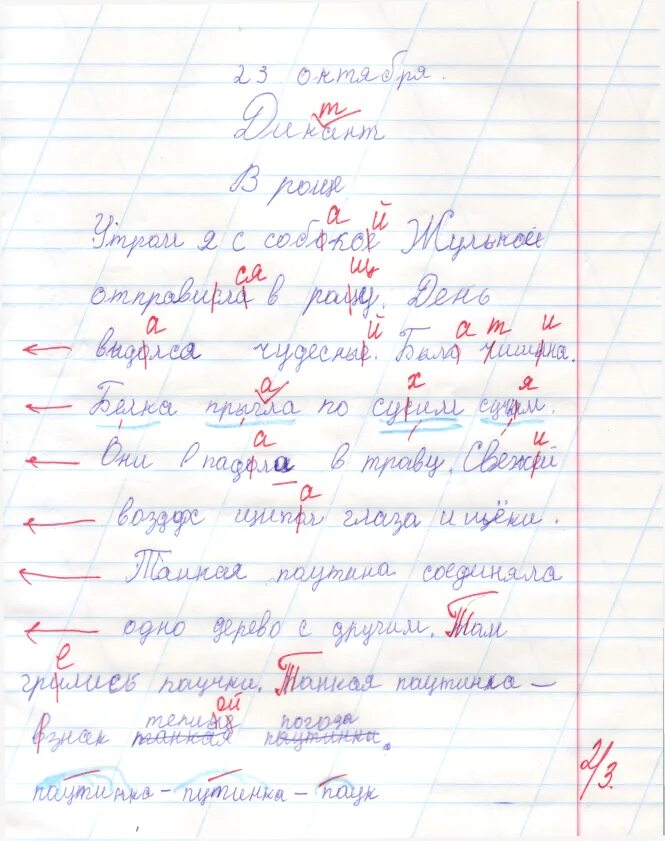 23 октября.
Динант
В роще
Утром я с собокой Жулькой
отправилса в рощу. День
выдолса чудесные. Было чишина.
Белка прыгла по сухим сучям.
Они впадола в траву. Свежей
воздох щипот глаза и щёки.
Танкая паутина соединяла
одно дерево с другим. Там
грились паучки. Танкая паутинка –
взнак теплые погода
танкая паутинки.
паутинка – путинка – паук
2/3.